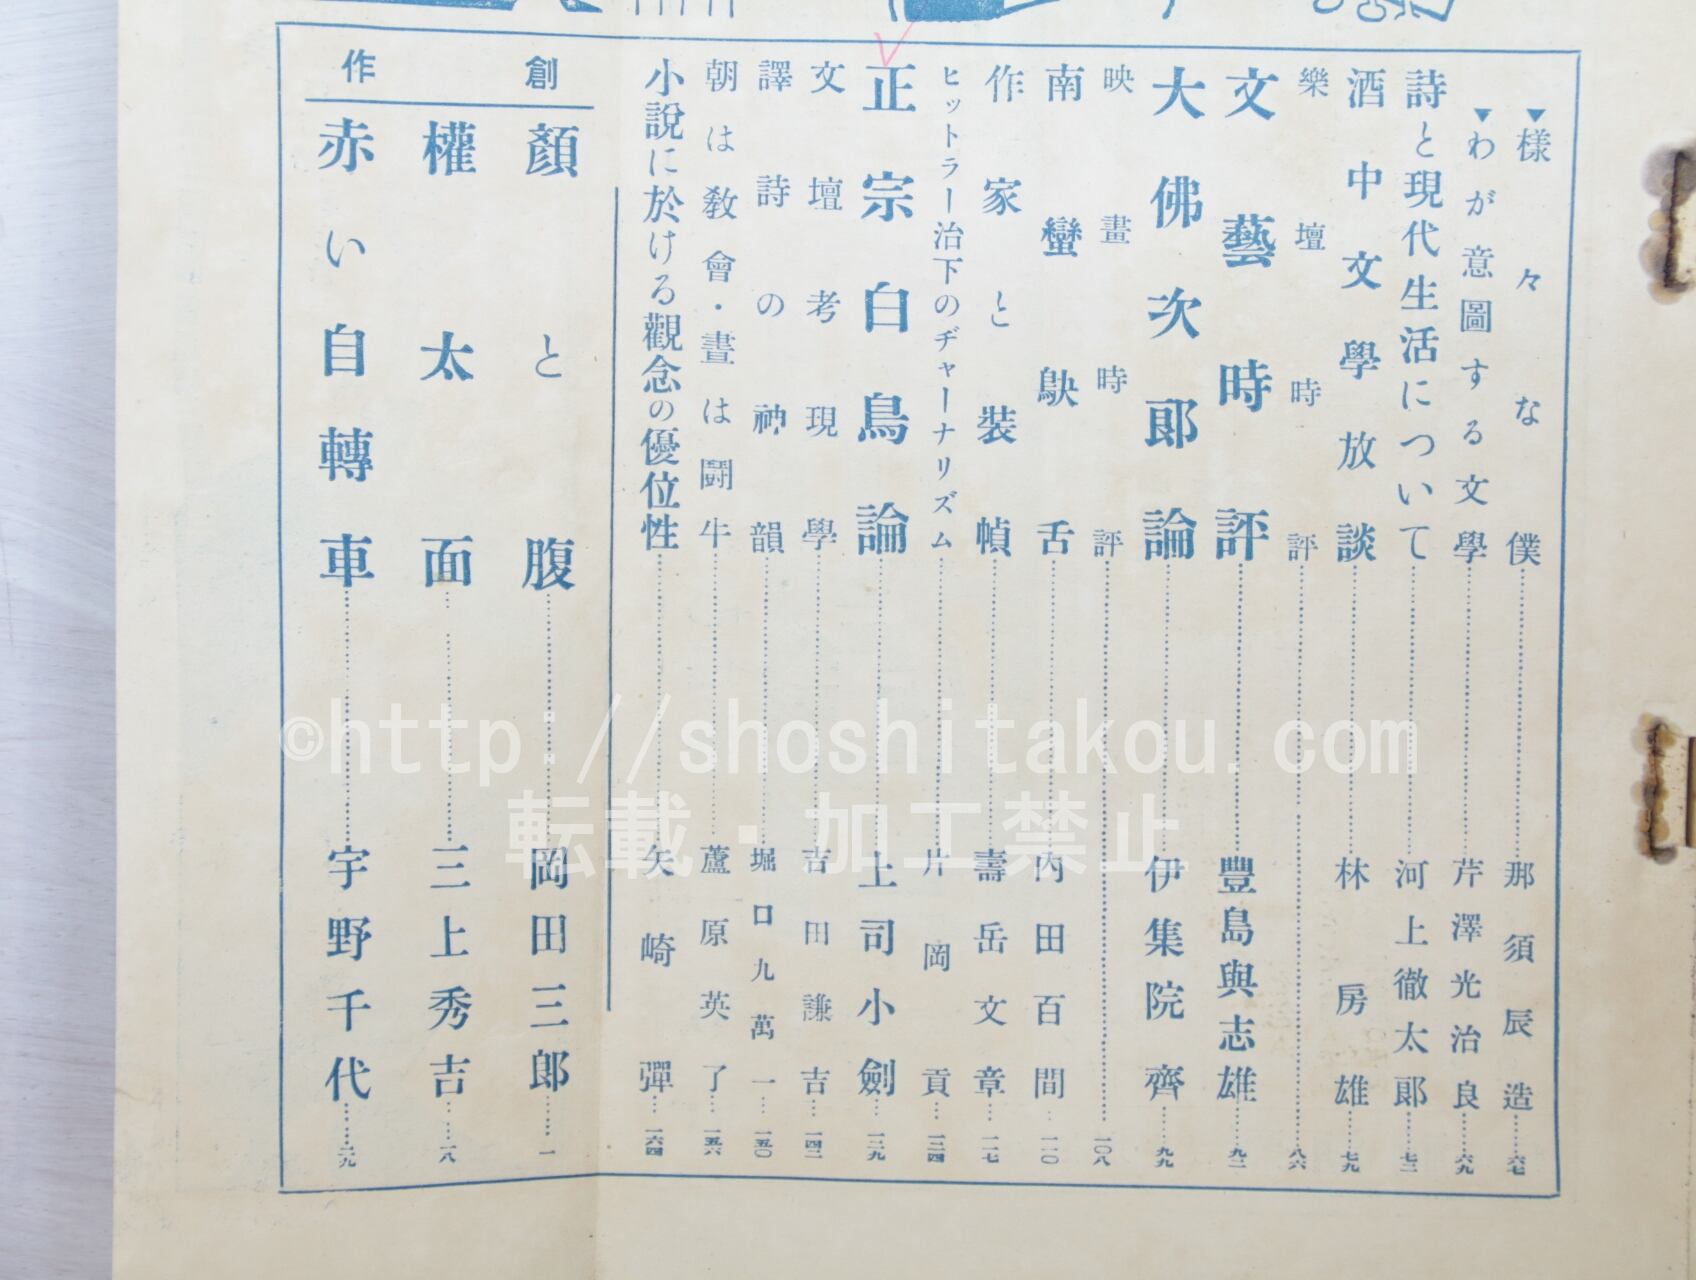 ▼様々な僕……那須辰造……六七
▼わが意圖する文學……芹澤光治良……六九
詩と現代生活について……河上徹太郎……七三
酒中文學放談……林房雄……七九
樂壇時評……八六
文藝時評……豐島與志雄……九二
大佛次郎論……伊集院齊……九九
映畫時評……一〇八
南蠻鴃舌……內田百間……一一〇
作家と裝幀……壽岳文章……一一七
ヒットラー治下のヂャーナリズム……片岡貢……一二四
正宗白鳥論……上司小劍……一二九
文壇考現學……吉田謙吉……一四二
譯詩の神韻……堀口九萬一……一五〇
朝は敎會・晝は鬪牛……蘆原英了……一五六
小說に於ける觀念の優位性……矢崎彈……一六四
創作
顏と腹……岡田三郎……一
權太面……三上秀吉……一八
赤い自轉車……宇野千代……二九
©http://shoshitakou.com
転載・加工禁止